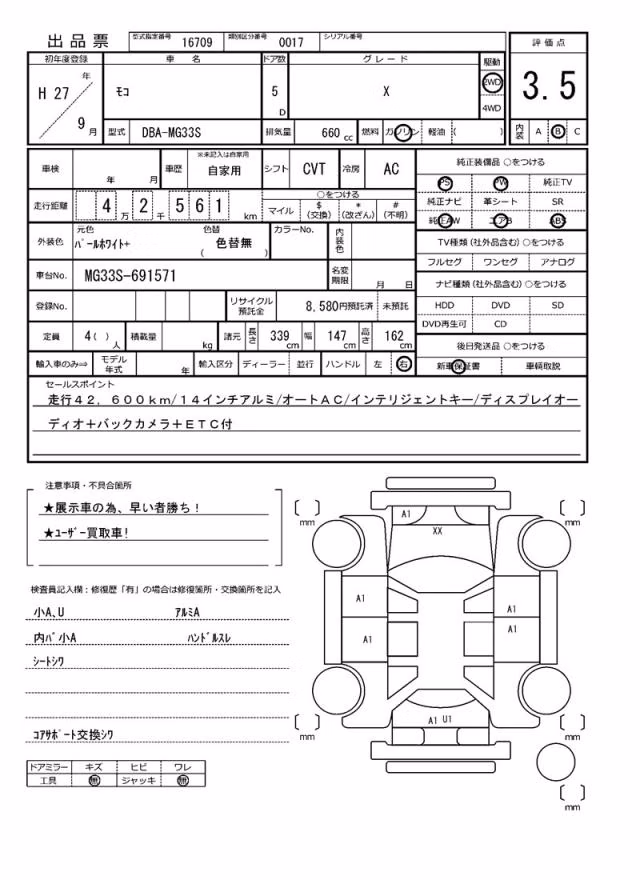 出品票
型式指定番号 16709 類別区分番号 0017 シリアル番号
初年度登録 車名 ドア数 グレード 駆動 評価点
H 27 年 9 月 ﾓｺ 5 D X 2WD 4WD 3.5
型式 DBA-MG33S 排気量 660 cc 燃料 ガソリン 軽油 ( ) 内装 A B C
車検 年 月 車歴 ※未記入は自家用 自家用 シフト CVT 冷房 AC
純正装備品 ○をつける
PS PW 純正TV
走行距離 4 万 2 千 561 km ○をつける
マイル $(交換) *(改ざん) #(不明)
純正ナビ 革シート SR
純正AW エアB ABS
外装色 元色 ﾊﾟｰﾙﾎﾜｲﾄ+ 色替 ( 色替無 ) カラーNo. 内装色
TV種類 (社外品含む) ○をつける
フルセグ ワンセグ アナログ
車台No. MG33S-691571 名変期限 月 日
ナビ種類 (社外品含む) ○をつける
登録No. リサイクル預託金 8,580円預託済 未預託
HDD DVD SD
DVD再生可 CD
定員 4( ) 人 積載量 kg 諸元 長さ 339 cm 幅 147 cm 高さ 162 cm
後日発送品 ○をつける
輸入車のみ⇒ モデル年式 年 輸入区分 ディーラー 並行 ハンドル 左 右
新車保証書 車輌取説
セールスポイント
走行４２，６００ｋｍ/１４インチアルミ/オートＡＣ/インテリジェントキー/ディスプレイオー
ディオ＋バックカメラ＋ＥＴＣ付
注意事項・不具合箇所
★展示車の為、早い者勝ち！
★ﾕｰｻﾞｰ買取車!
検査員記入欄：修復歴「有」の場合は修復箇所・交換箇所を記入
小A､U ｱﾙﾐA
内ﾊﾞ小A ﾊﾝﾄﾞﾙｽﾚ
ｼｰﾄｼﾜ
ｺｱｻﾎﾟｰﾄ交換ｼﾜ
ドアミラー キズ ヒビ ワレ
工具 無 ジャッキ 無
mm mm
A1
XX
A1 A1
A1 A1
A1 U1
mm mm
mm